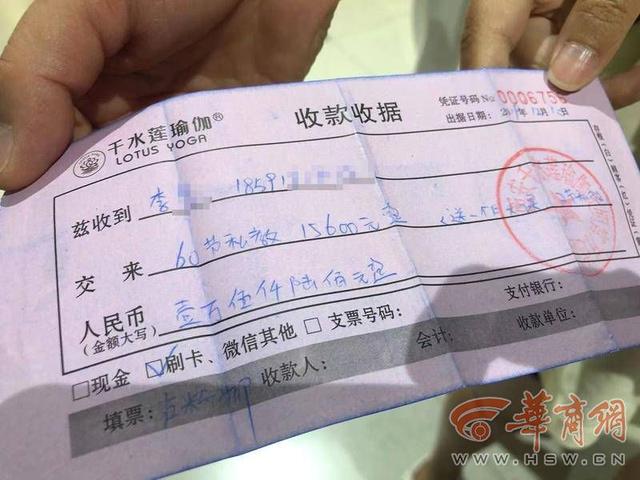 千水莲瑜伽®
LOTUS YOGA
收款收据
凭证号码No 0006755
出据日期:
兹收到 李 1859
交来 60节私教 15600元整 (送一个月
人民币 壹万伍仟陆佰元整
(金额大写)
□现金 ☑刷卡、微信其他 □支票号码: 支付银行:
填票: 收款人: 会计: 收款单位:
華商網
WWW.HSW.CN